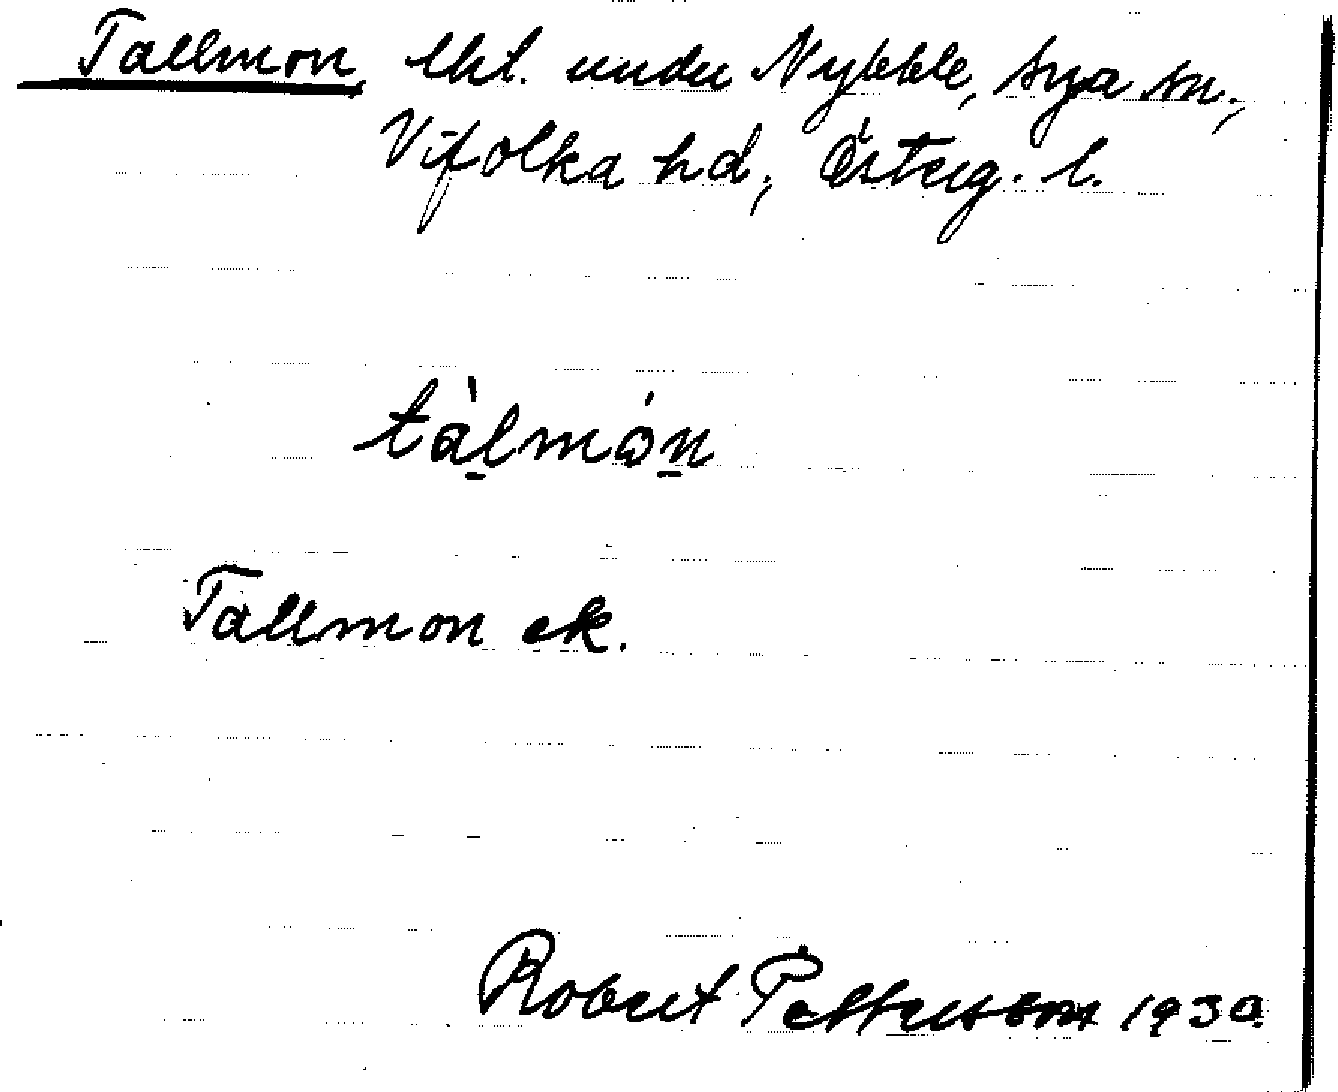 Tallmon, lht. under Nybble, Sya sn.,
Vifolka hd, Österg. l.
tàl̲món̲
Tallmon ek.
Robert Pettersson 1930.